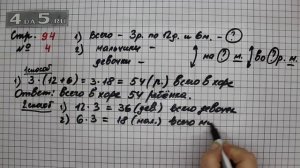 4DA5.RU
Стр. 94
№ 4
1) Всего - 3р. по 12д. и 6м. - ?
2) мальчики -
девочки -
на ? м. во ? р. м.
1 способ
1) 3 · (12 + 6) = 3 · 18 = 54 (р.) всего в хоре
Ответ: всего в хоре 54 ребёнка.
2 способ
1) 12 · 3 = 36 (дев.) всего девочек
2) 6 · 3 = 18 (мал.) всего м